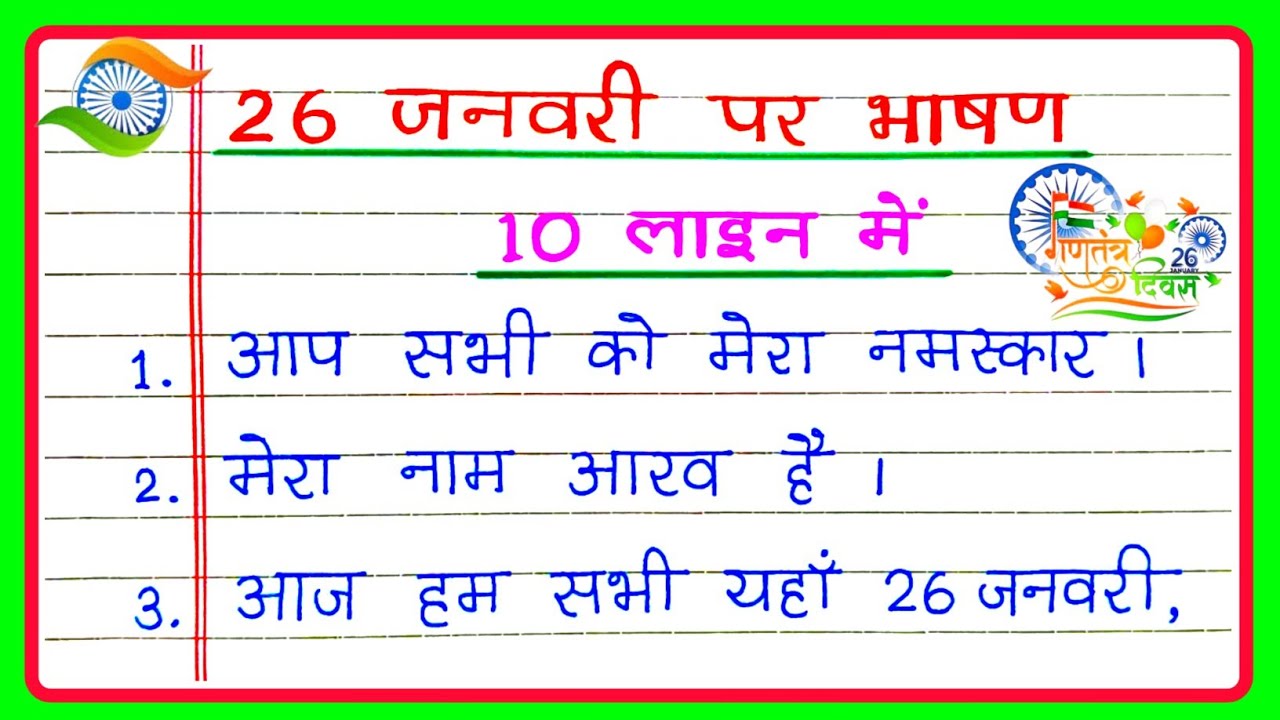 26 जनवरी पर भाषण
10 लाइन में
गणतंत्र
26
JANUARY
दिवस
1. आप सभी को मेरा नमस्कार ।
2. मेरा नाम आरव है ।
3. आज हम सभी यहाँ 26 जनवरी,